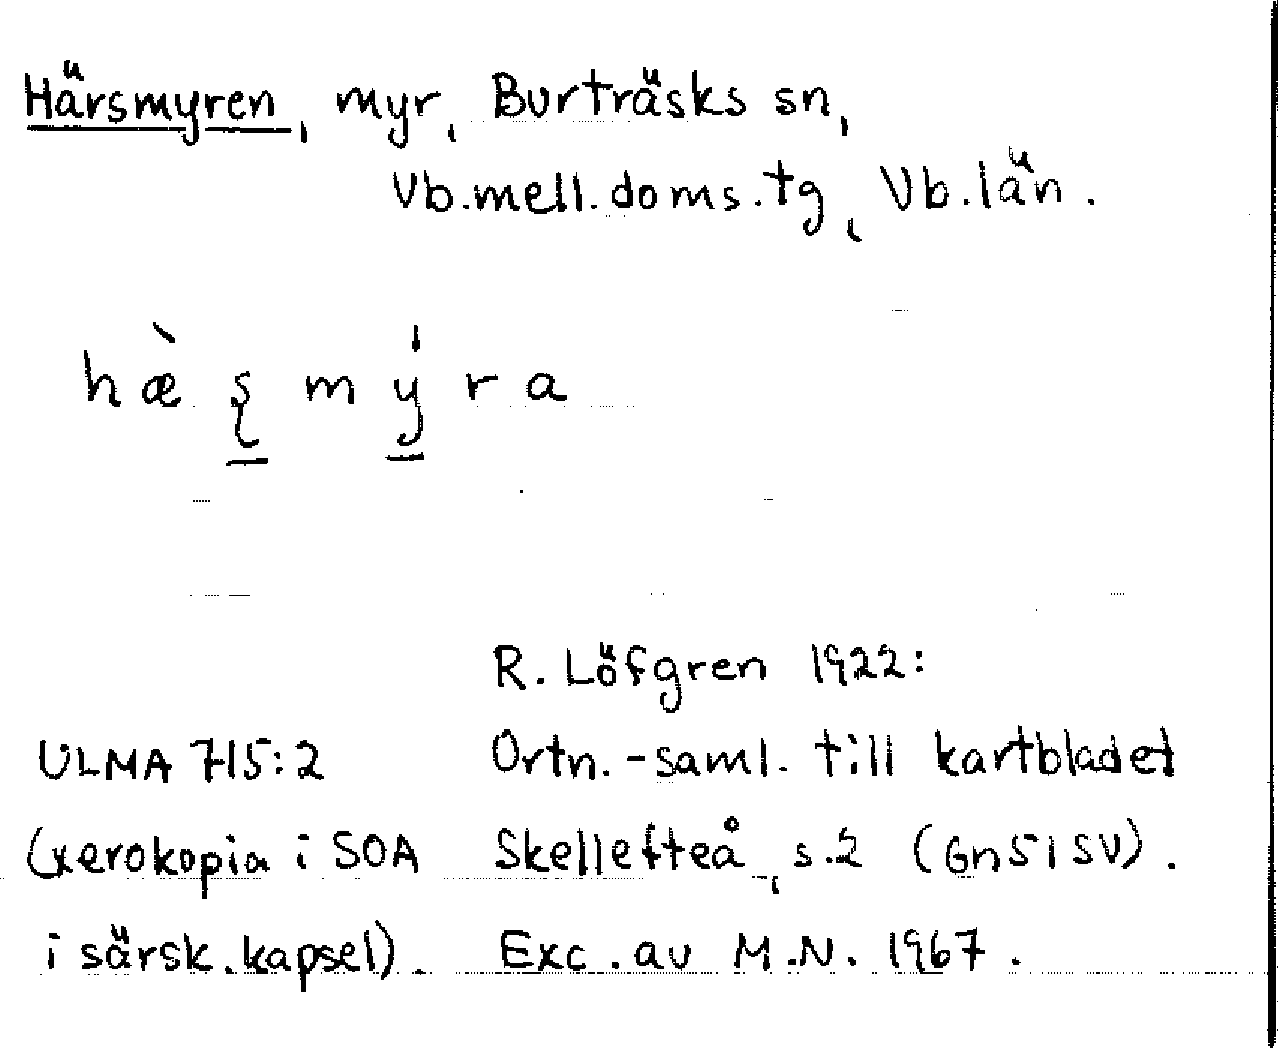 Härsmyren, myr, Burträsks sn,
Vb.mell.doms.tg, Vb.län.
hæ̀ʂmýra
R. Löfgren 1922:
ULMA 715:2 Ortn.-saml. till kartbladet
(xerokopia i SOA Skellefteå, s.2 (Gn51SV).
i särsk.kapsel). Exc. av M.N. 1967.